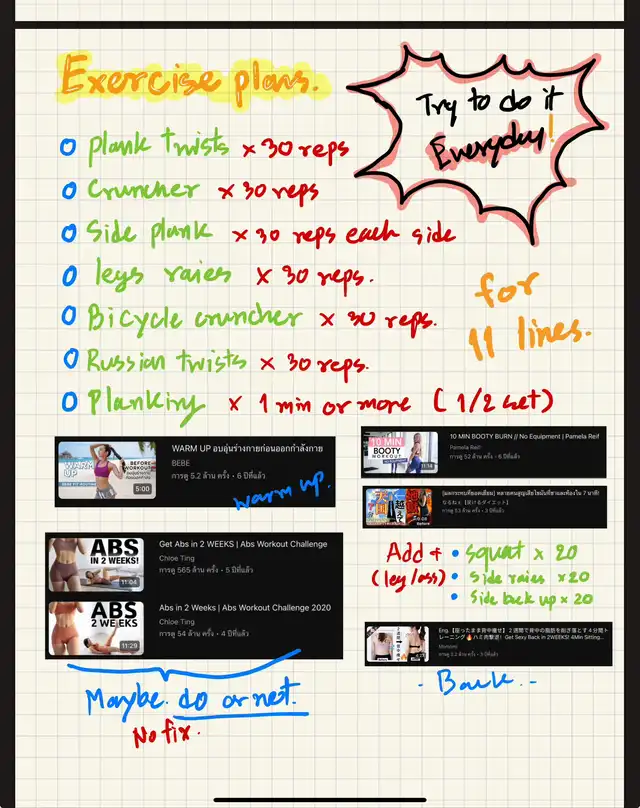 Exercise plans.
Try to do it
Everyday!
plank twists × 30 reps
Cruncher × 30 reps
Side plank × 30 reps each side
legs raies × 30 reps.
Bicycle cruncher × 30 reps.
Russian twists × 30 reps.
Planking × 1 min or more ( 1/2 set )
for
11 lines.
WARM UP อบอุ่นร่างกายก่อนออกกำลังกาย
BEBE
การดู 5.2 ล้าน ครั้ง • 6 ปีที่แล้ว
WARM UP
BEFORE
WORKOUT
5:00
warm up.
10 MIN BOOTY BURN // No Equipment | Pamela Reif
Pamela Reif
การดู 52 ล้าน ครั้ง • 6 ปีที่แล้ว
10 MIN
BOOTY
WORKOUT
11:14
การดู 53 ล้าน ครั้ง • 3 ปีที่แล้ว
Get Abs in 2 WEEKS | Abs Workout Challenge
Chloe Ting
การดู 565 ล้าน ครั้ง • 5 ปีที่แล้ว
ABS
IN 2 WEEKS!
11:04
Abs in 2 Weeks | Abs Workout Challenge 2020
Chloe Ting
การดู 54 ล้าน ครั้ง • 4 ปีที่แล้ว
ABS
2 WEEKS
11:29
Add + • squat × 20
(leg/ass) • Side raies × 20
• Side back up × 20
Eng.【座ったまま背中痩せ】2週間で背中の脂肪を削ぎ落とす4分間ト
レーニング🔥ハミ肉撃退! Get Sexy Back in 2WEEKS! 4Min Sitting...
- Back -
Maybe. do or not.
No fix.